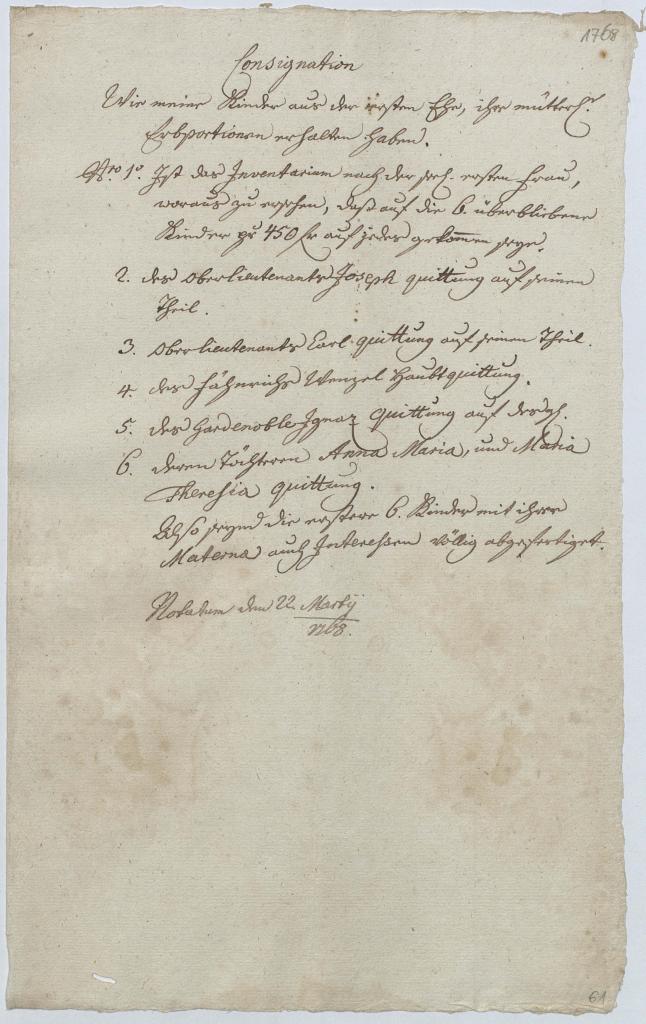 1768
Consignation
Wie meine Kinder aus der ersten Ehe, ihre mütterl.
Erbportionen erhalten haben.
Nro 1o. Ist das Inventarium nach der seel. ersten Frau,
woraus zu ersehen, daß auf die 6. überbliebene
Kinder zu 450 fr auf jedes gekommen seye.
2. des Oberlieutenants Joseph quittung auf seinen
Theil.
3. Oberlieutenants Carl quittung auf seinen Theil.
4. des Fähnrichs Wenzel Haubtquittung.
5. des Gardenoble Ignaz quittung auf desgl.
6. deren Töchteren Anna Maria, und Maria
Theresia quittung.
Also seynd die erstere 6. Kinder mit ihrer
Materna auch Interessen völlig abgefertiget.
Notatum den 22. Martij
1768.
61